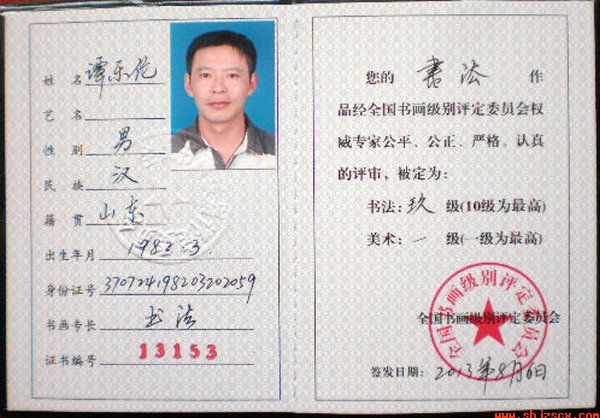 姓名 谭乐伦
艺名
性别 男
民族 汉
籍贯 山东
出生年月 1982.3.
身份证号 370724198203202059
书画专长 书法
证书编号 13153
您的 书法 作
品经全国书画级别评定委员会权
威专家公平、公正、严格、认真
的评审，被定为：
书法：玖 级(10级为最高)
美术：一 级(一级为最高)
全国书画级别评定委员会
全国书画级别评定委员会
签发日期：2013年8月6日
www.sbjzscx.com